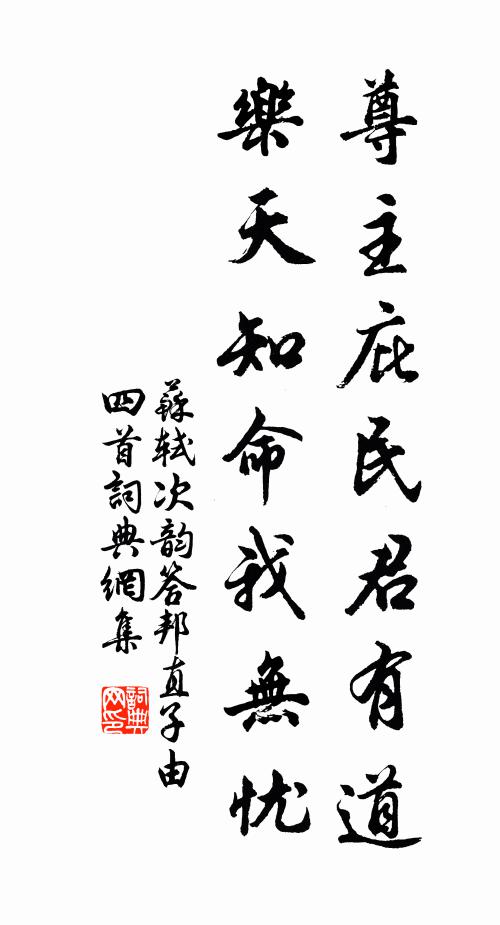 尊主庇民君有道
樂天知命我無忧
蘇軾次韵答邦直子由
四首詞典網集
詞典
网印